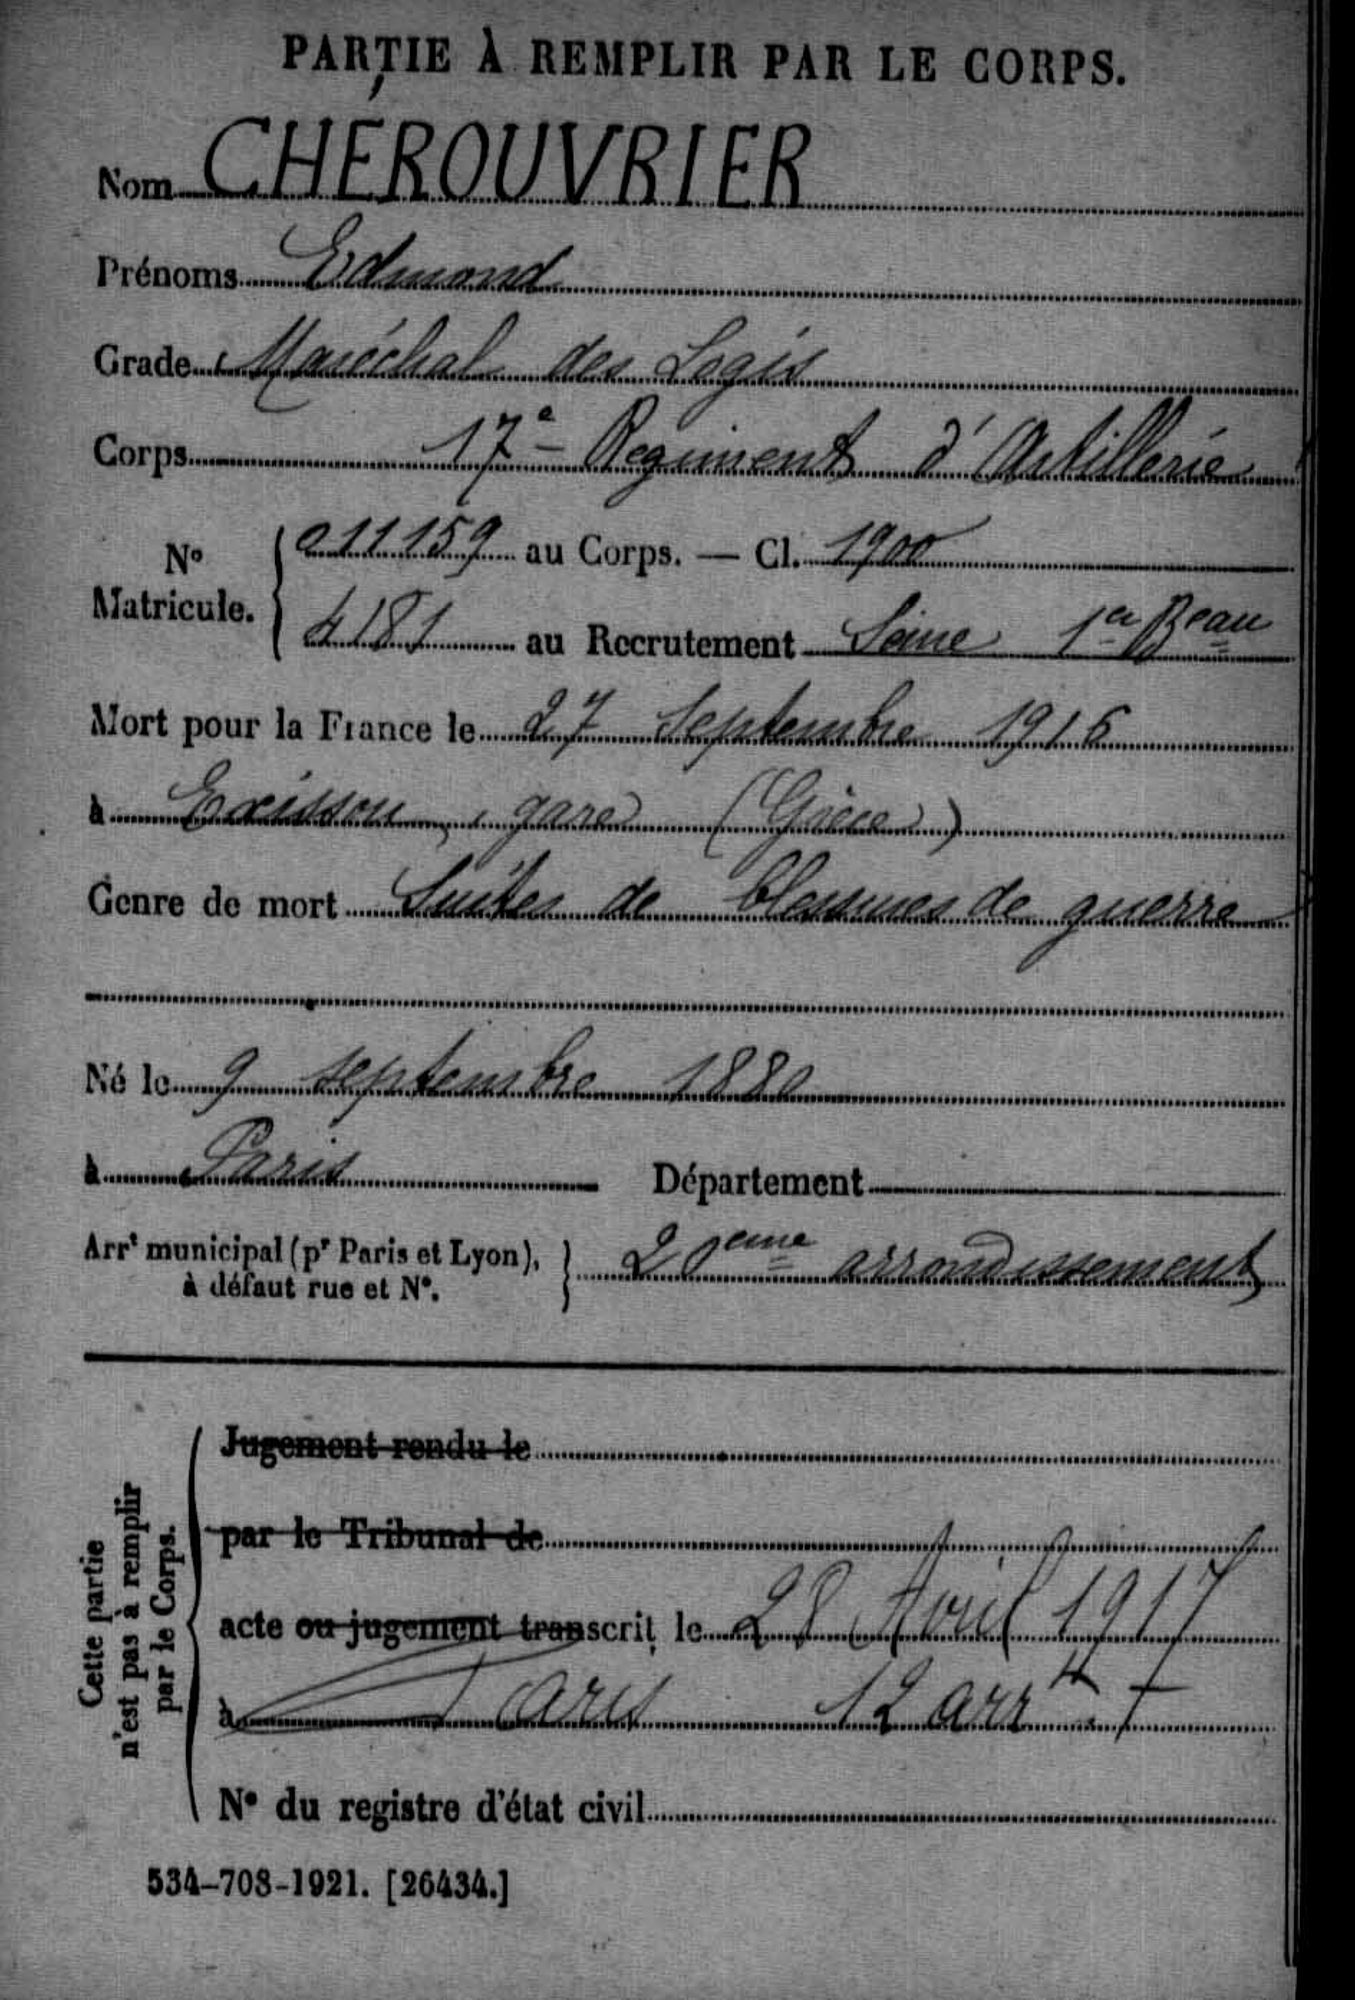 PARTIE À REMPLIR PAR LE CORPS.
Nom CHÉROUVRIER
Prénoms Edmond
Grade Maréchal des Logis
Corps 17e Régiment d'Artillerie
No Matricule. { 011159 au Corps. — Cl. 1900
4181 au Recrutement Seine 1er Beau
Mort pour la France le 27 septembre 1916
à Exissou, gare (Grèce)
Genre de mort Suites de blessures de guerre
Né le 9 septembre 1880
à Paris Département
Arrt municipal (pr Paris et Lyon), à défaut rue et No. } 20eme arrondissement
Cette partie n'est pas à remplir par le Corps.
Jugement rendu le
par le Tribunal de
acte ou jugement transcrit le 28 Avril 1917
à Paris 12 arrt
No du registre d'état civil
534-708-1921. [26434.]